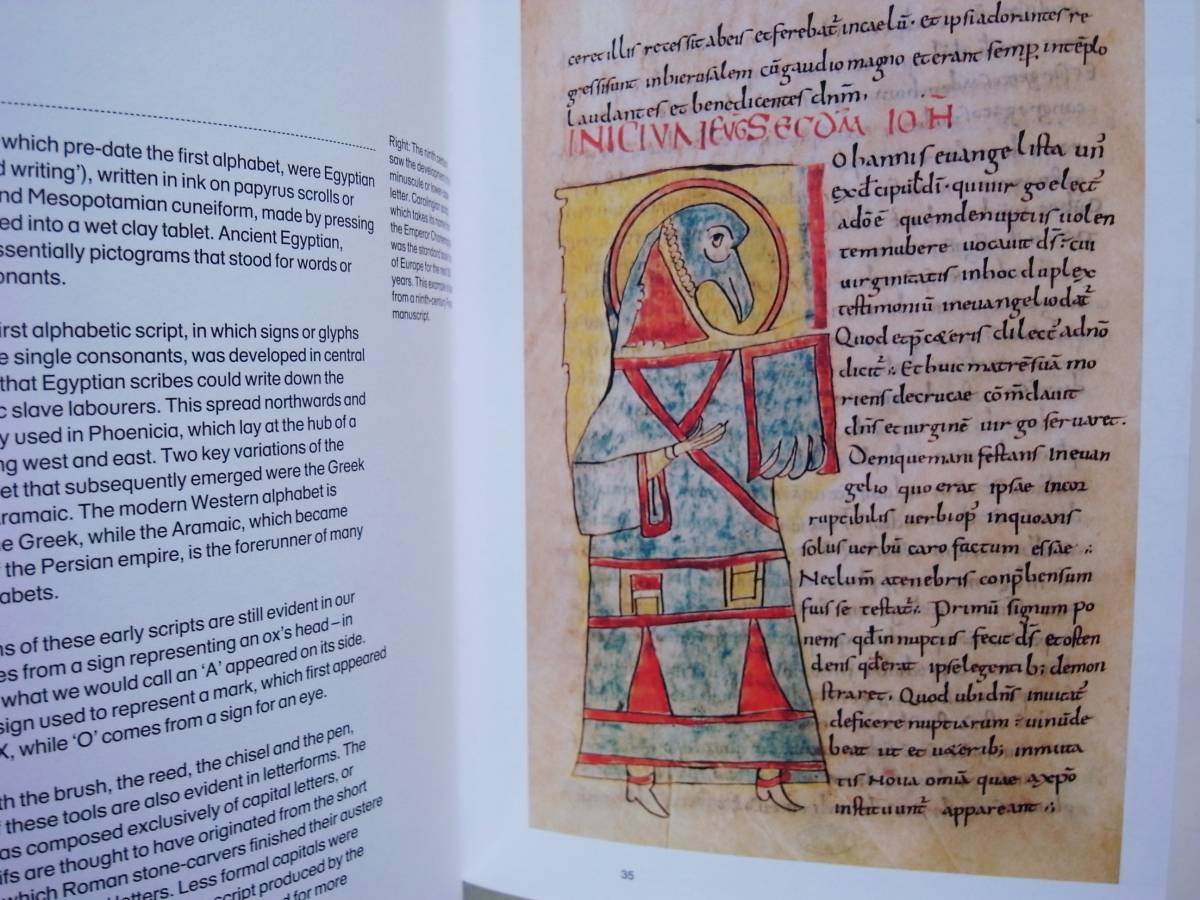 which pre-date the first alphabet, were Egyptian
writing'), written in ink on papyrus scrolls or
nd Mesopotamian cuneiform, made by pressing
ed into a wet clay tablet. Ancient Egyptian,
ssentially pictograms that stood for words or
onants.
irst alphabetic script, in which signs or glyphs
e single consonants, was developed in central
that Egyptian scribes could write down the
c slave labourers. This spread northwards and
y used in Phoenicia, which lay at the hub of a
ng west and east. Two key variations of the
et that subsequently emerged were the Greek
ramaic. The modern Western alphabet is
e Greek, while the Aramaic, which became
f the Persian empire, is the forerunner of many
abets.
ns of these early scripts are still evident in our
es from a sign representing an ox's head – in
what we would call an 'A' appeared on its side.
sign used to represent a mark, which first appeared
X, while 'O' comes from a sign for an eye.
th the brush, the reed, the chisel and the pen,
f these tools are also evident in letterforms. The
as composed exclusively of capital letters, or
ifs are thought to have originated from the short
which Roman stone-carvers finished their austere
letters. Less formal capitals were
script produced by the
d for more
Right: The ninth
saw the development
minuscule or lower
letter. Carolingian
which takes its name
the Emperor
was the standard
of Europe for the next
years. This example
from a ninth-century
manuscript.
ceret illis recessit abeis et ferebat᷑ incaelū · et ipsi adorantes re
gressi sunt inhierusalem cū gaudio magno et erant semp̱ intēplo
laudantes et benedicentes dnm̄,
INICIVM EVGS ECDM IOH
Ohannis euangelista un᷑
quiuir go elect᷑
adōe quemdenuptiis uolen
tem nubere uocauit ds̄
uirginitatis inhoc duplex
testimoniū ineuangelio dat᷑
Quod dilect᷑
dicit᷑ Et huic matrē suā mo
riens decrucae cōmdauit
dn̄s et uirginē uir go seruaret.
Denique manifestans ineuan
gelio quo erat ipsae incor
ruptibilis uerbi inquoans
solus uerbū caro factum essae
Nec lum̄ atenebris conp̄hensum
fuisse testat᷑ Primū signum po
nens qd̄ in nuptiis fecit ds̄ et osten
dens qd̄ erat ipse legentib; demon
straret. Quod ubi dn̄s inuitat᷑
deficere nuptiarum uinū de
beat ut et ueterib; inmuta
tis noua omīa quae axp̄o
instituunt᷑ appareant
35